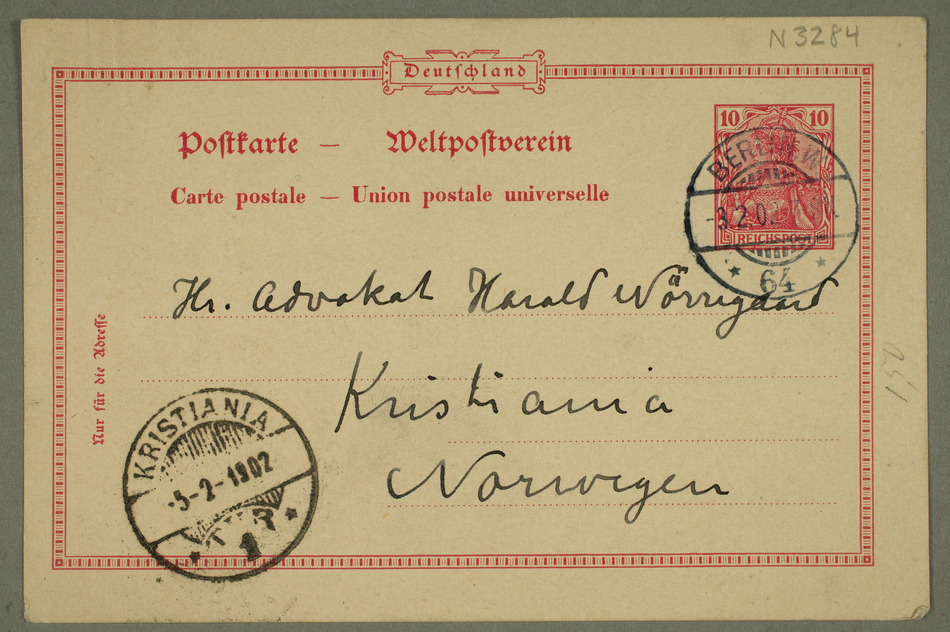 N 3284
Deutschland
Postkarte — Weltpostverein
Carte postale — Union postale universelle
10 10
REICHSPOST
BERLIN. W
-3.2.02.
64
Hr. Advokat Harald Nörregaard
Kristiania
Norwegen
Nur für die Adresse
KRISTIANIA
-5-2-1902
1